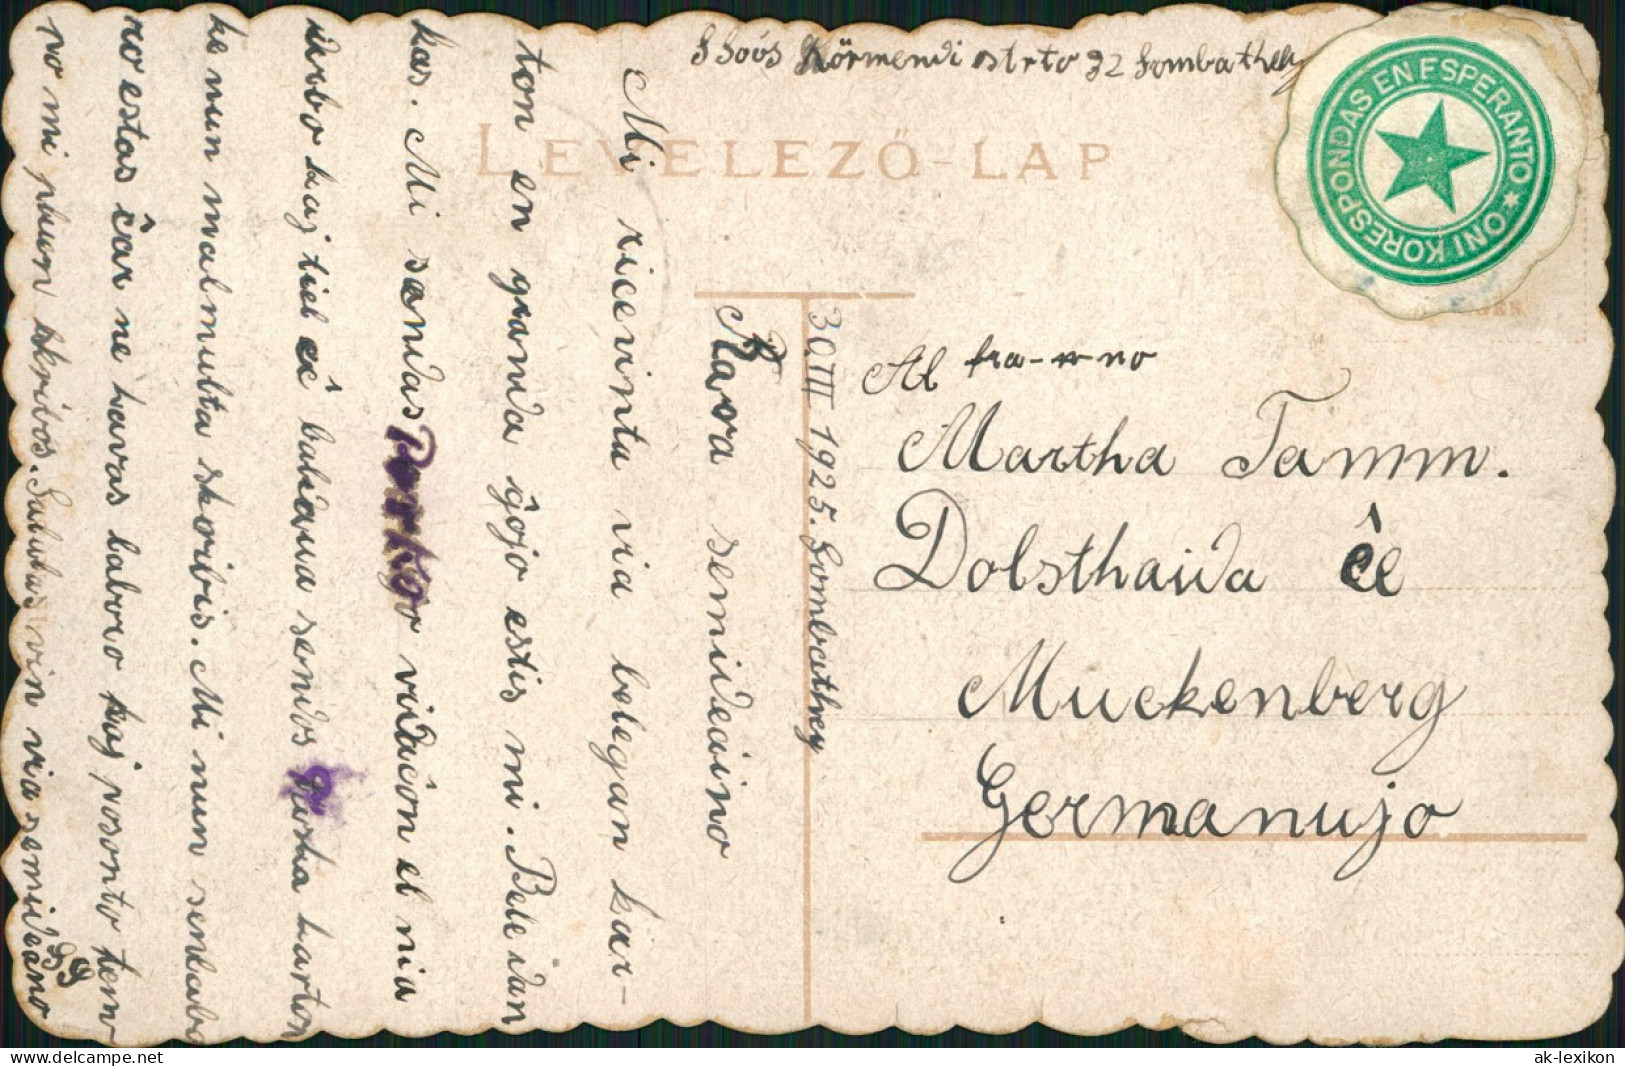 S Soós Körmendi strto 32 Sombathely
LEVELEZŐ-LAP
ONI KORESPONDAS EN ESPERANTO
30.III 1925. Sombathely
Kara semideaino
Mi ricevintu via belegan kar-
ton en granda ĝojo estis mi. Bele dan
kas. Mi sendas vidaĉon el nia
urbo kaj tiel eĉ baldaua sendos karton
ke nun malmulta skoribis. Mi nun
no estas ĉar ne havas laboro kaj posonto tem-
po mi plun skribos. Salutas vin via semideano
SS
Al
Martha Tamm.
Dolsthaida ĉe
Muckenberg
Germanujo
ak-lexikon